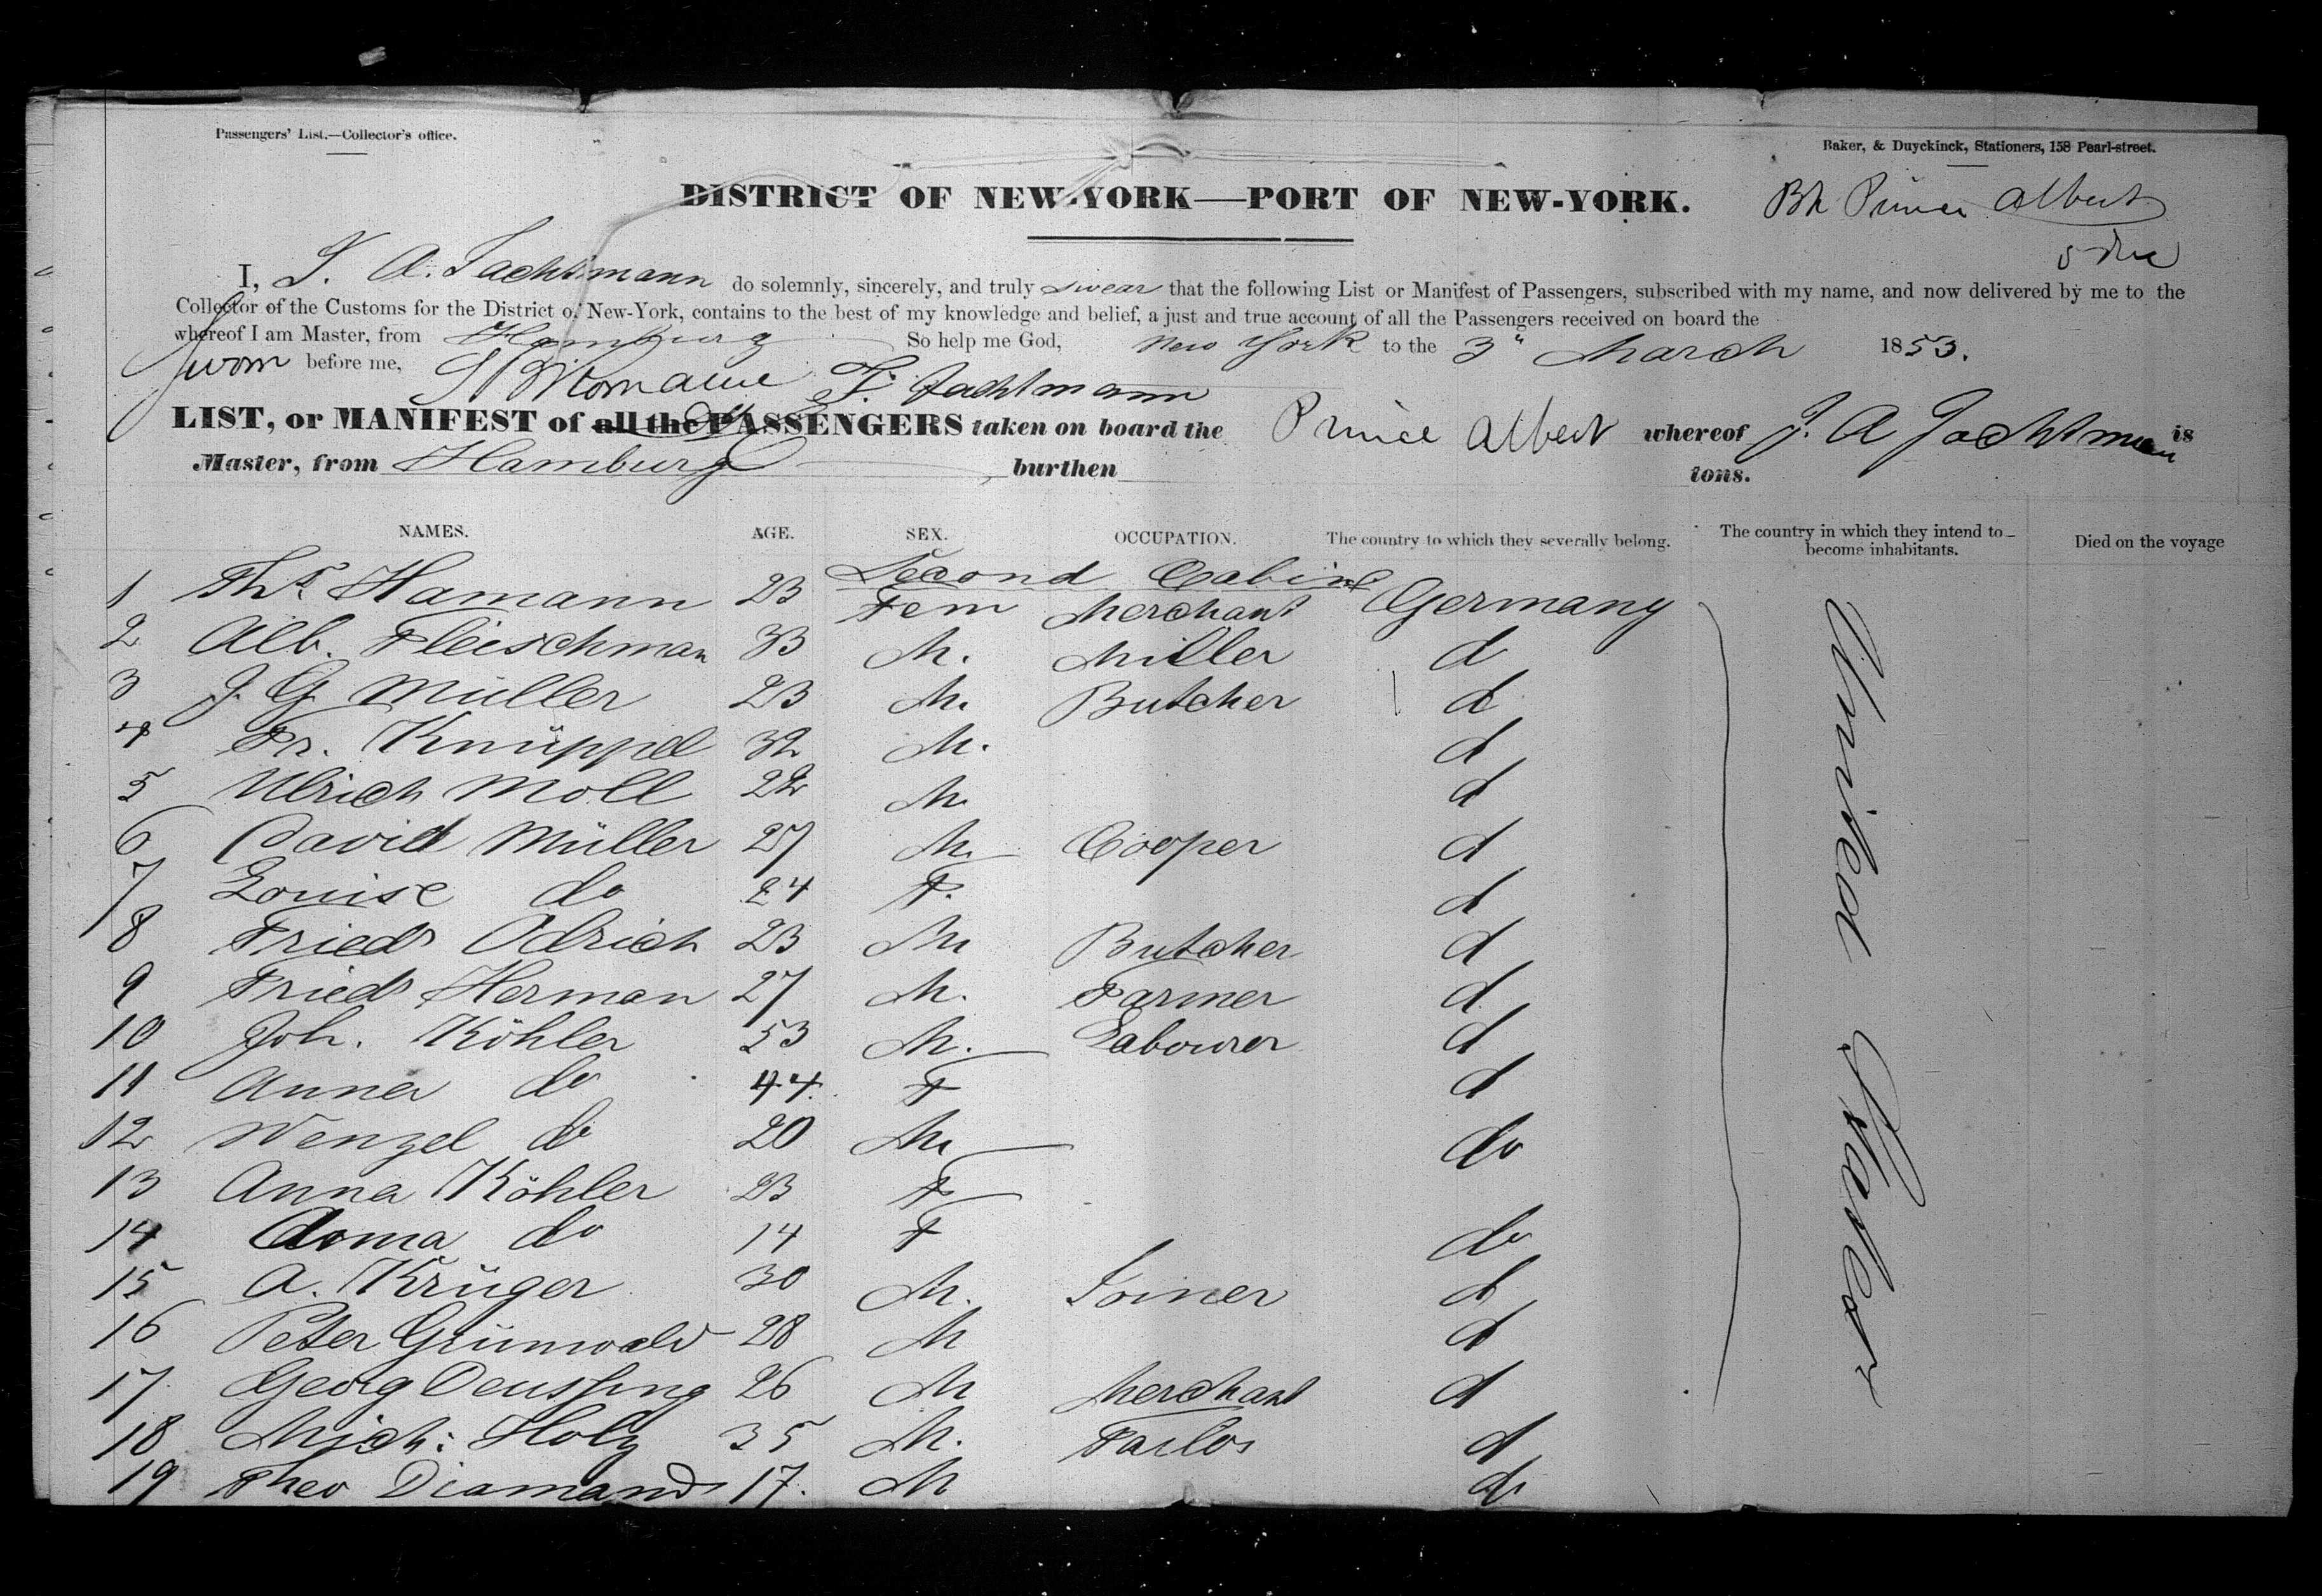 Passengers' List.—Collector's office.
Baker, & Duyckinck, Stationers, 158 Pearl-street.
DISTRICT OF NEW-YORK—PORT OF NEW-YORK.
Bk Prince Albert
I, J. A. Jachtmann do solemnly, sincerely, and truly swear that the following List or Manifest of Passengers, subscribed with my name, and now delivered by me to the
Collector of the Customs for the District of New-York, contains to the best of my knowledge and belief, a just and true account of all the Passengers received on board the
whereof I am Master, from Hamburg So help me God, New York to the 3" March 1853.
Sworn before me, J. Jachtmann
LIST, or MANIFEST of all the PASSENGERS taken on board the Prince Albert whereof J. A Jachtman is
Master, from Hamburg burthen tons.
NAMES. AGE. SEX. OCCUPATION. The country to which they severally belong. The country in which they intend to become inhabitants. Died on the voyage
Second Cabin
1 Hamann 23 Fem Merchant Germany United States
2 Alb. Fleischman 33 M. Miller d
3 J. G Müller 23 M. Butcher d
4 Fr. Knüppel 32 M. d
5 Ulrich Moll 22 M. d
6 David Müller 27 M. Cooper d
7 Louise do 24 F. d
8 Friedr Odrich 23 M Butcher d
9 Friedr Herman 27 M. Farmer d
10 Joh. Köhler 53 M. Labourer d
11 Anna do 44. F d
12 Wenzel do 20 M do
13 Anna Köhler 23 F
14 do 14 F do
15 A. Krüger 30 M. Joiner d
16 Peter Grunwald 28 M d
17 Georg Deussing 26 M Merchant d
18 Mich: Holz 35 M. d
19 Theo Diamand 17. M do